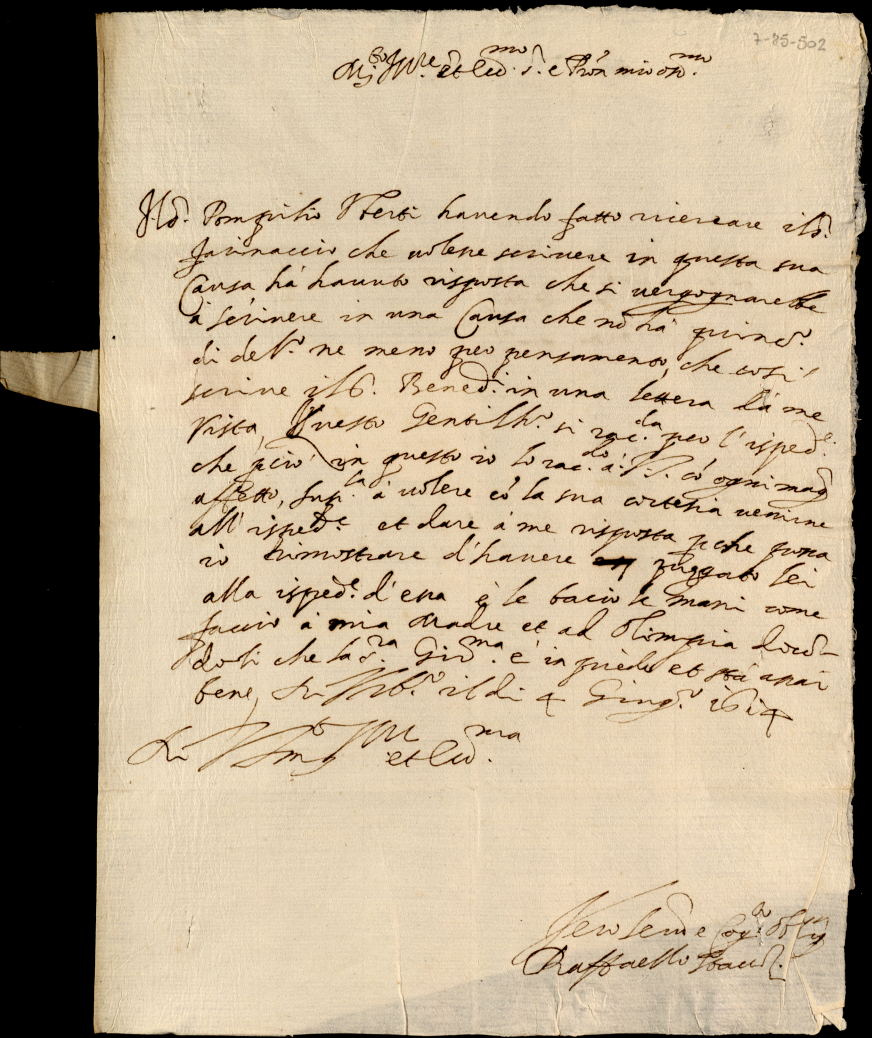 7-85-502
Mg.to Ill.re et Ecc.mo S.r e Pron mio oss.mo
Il S.r Pompilio havendo fatto ricercare il S.r
farinaccio che volesse scrivere in questa sua
Causa há havuto risposta che si vergognarebbe
á scrivere in una Causa che nõ há
di ne meno per pensamento, che cosi
scrive il S. Bened.i in una lettera dá me
vista, Questo Gentilh.o si rac.da per l'isped.e
che perciò in questo io lo rac.do á V.S. cõ ogni mag
affetto, sup.la á volere cõ la sua cortesia venirne
all'isped.e et dare á me risposta perche possa
io dimostrare d'havere pregato lei
alla isped.e d'essa é le bacio le mani come
faccio á mia Madre et ad Olimpia
doli che la S.ra Gir.ma é in piedi et stá assai
bene, Di il di 4 Giug.o 1614
Di V.S. m.to Ill.re et Ecc.ma
Ser.e e
Raffaello